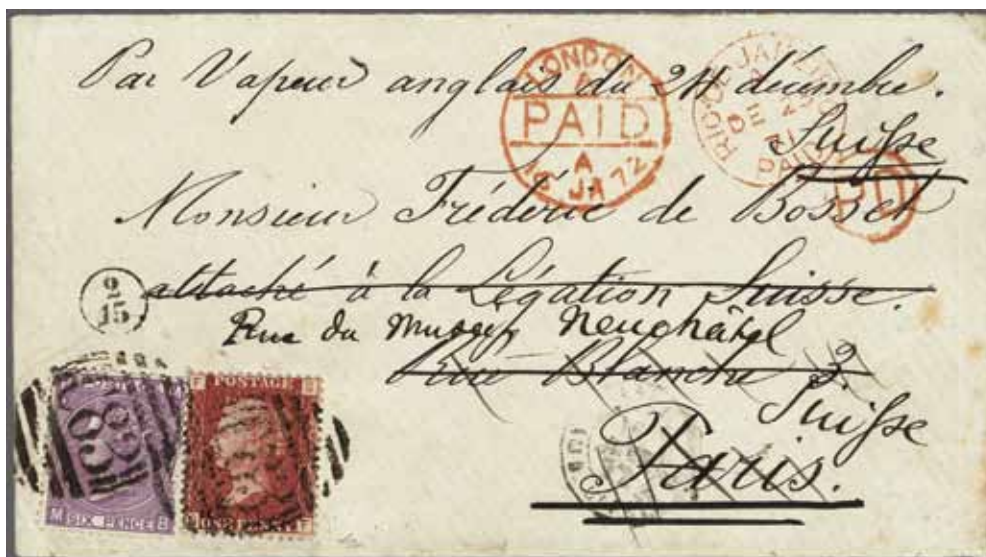 Par Vapeur anglais du 24 décembre.
LONDON
PAID
A
JA 72
RIO DE JANEIRO
DE 2
71
PAID
Suisse
PD
Monsieur Frédéric de Bosset
attaché à la Légation Suisse.
9
15
Rue du Musée, Neuchâtel
rue Blanche 3.
Suisse
Paris.
C83
POSTAGE
M SIX PENCE B
F POSTAGE B
ONE PENNY F